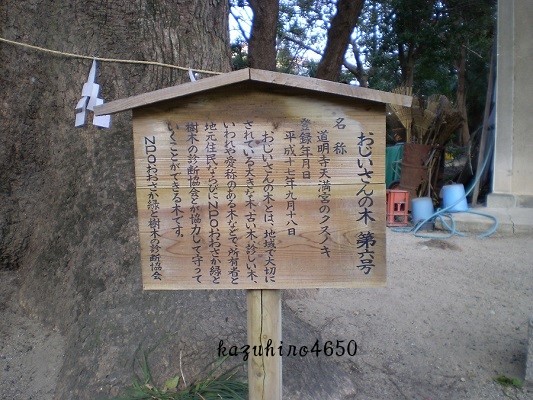 おじいさんの木 第六号
名称
道明寺天満宮のクスノキ
登録年月日
平成十七年九月十八日
おじいさんの木とは、地域で大切に
されている大きな木、古い木、珍しい木、
いわれや愛称のある木などで、所有者と
地元住民ならびにNPOおおさか緑と
樹木の診断協会とが協力して守って
いくことができる木です。
NPOおおさか緑と樹木の診断協会
kazuhiro4650